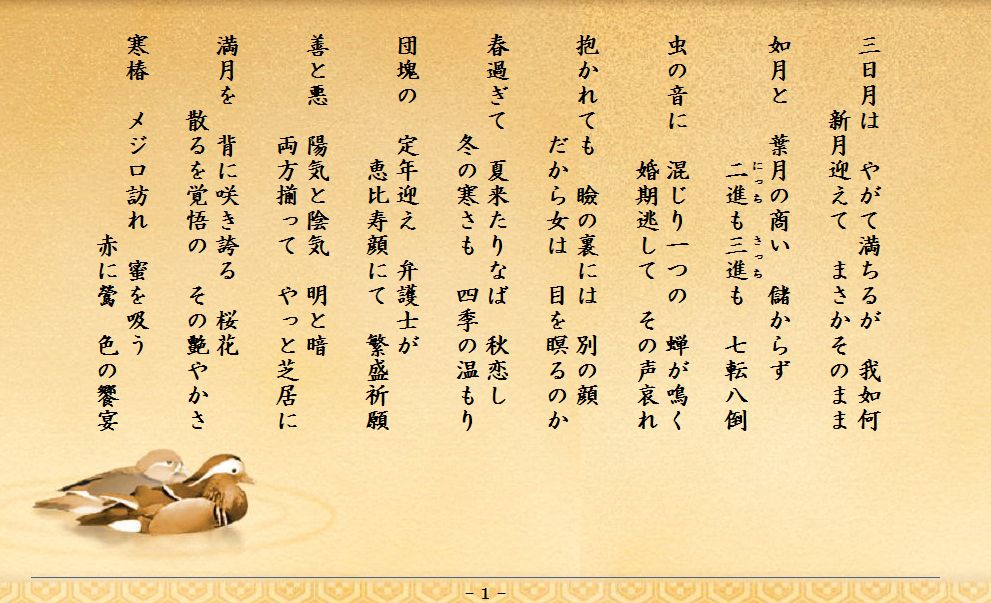 三日月は　やがて満ちるが　我如何
新月迎えて　まさかそのまま
如月と　葉月の商い　儲からず
二進も三進も　七転八倒
にっち　さっち
虫の音に　混じり一つの　蝉が鳴く
婚期逃して　その声哀れ
抱かれても　瞼の裏には　別の顔
だから女は　目を瞑るのか
春過ぎて　夏来たりなば　秋恋し
冬の寒さも　四季の温もり
団塊の　定年迎え　弁護士が
恵比寿顔にて　繁盛祈願
善と悪　陽気と陰気　明と暗
両方揃って　やっと芝居に
満月を　背に咲き誇る　桜花
散るを覚悟の　その艶やかさ
寒椿　メジロ訪れ　蜜を吸う
赤に鶯　色の饗宴
- 1 -